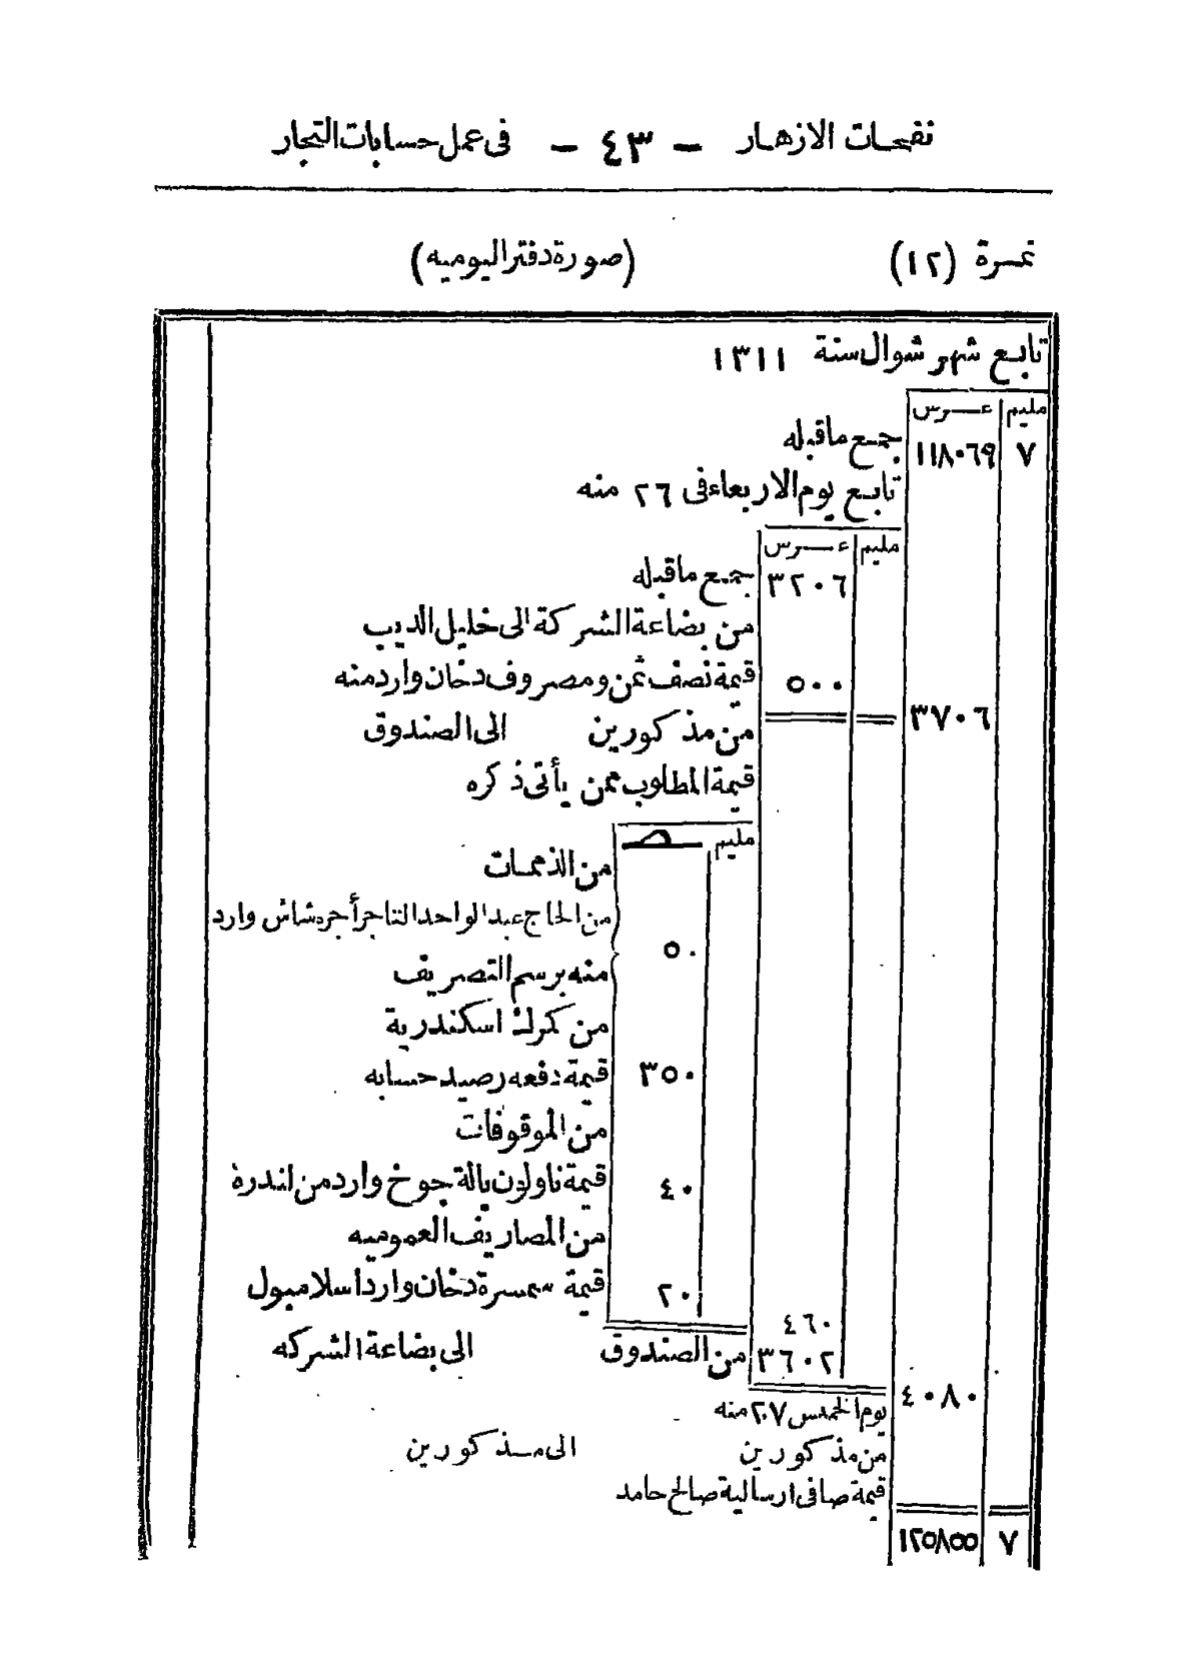 نفحات الازهار - ٤٣ - فى عمل حسابات التجار
نمرة (١٢) (صورة دفتر اليوميه)
تابع شهر شوال سنة ١٣١١
مليم غرس
٧ ١١٨٠٦٩ جمع ماقبله
تابع يوم الاربعاء فى ٢٦ منه
مليم غرس
٣٢٠٦ جمع ماقبله
من بضاعة الشركة الى خليل الديب
٥٠٠ قيمة نصف ثمن ومصروف دخان وارد منه
٣٧٠٦ من مذكورين الى الصندوق
قيمة المطلوب ممن يأتى ذكره
مليم
من الذممات
من الحاج عبد الواحد التاجر أجره شاش وارد
٥٠
منه برسم التصريف
من كمرك اسكندرية
٣٥٠ قيمة دفعه رصيد حسابه
من الموقوفات
٤٠ قيمة ناولون بالة جوخ وارد من لندره
من المصاريف العموميه
٢٠ قيمة سمسرة دخان وارد اسلامبول
٤٦٠
٣٦٠٢ من الصندوق الى بضاعة الشركه
٤٠٨٠
يوم الخميس ٢٧ منه
من مذكورين الى مذكورين
قيمة صافى ارسالية صالح حامد
٧ ١٢٥٨٥٥